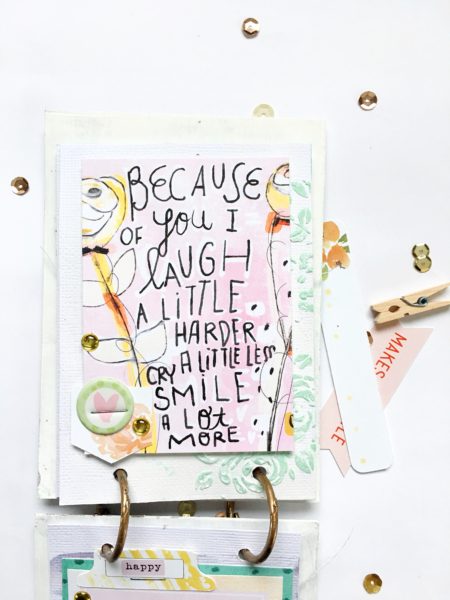 BECAUSE
OF YOU I
LAUGH
A LITTLE
HARDER
A LITTLE LESS
CRY
SMILE
A LOT
MORE
MAKES
happy